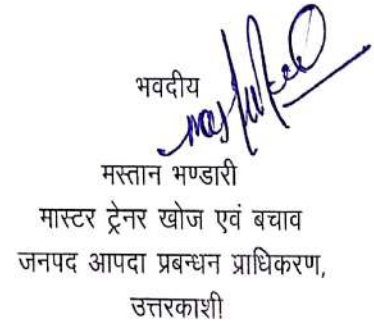 भवदीय
मस्तान भण्डारी
मास्टर ट्रेनर खोज एवं बचाव
जनपद आपदा प्रबन्धन प्राधिकरण,
उत्तरकाशी